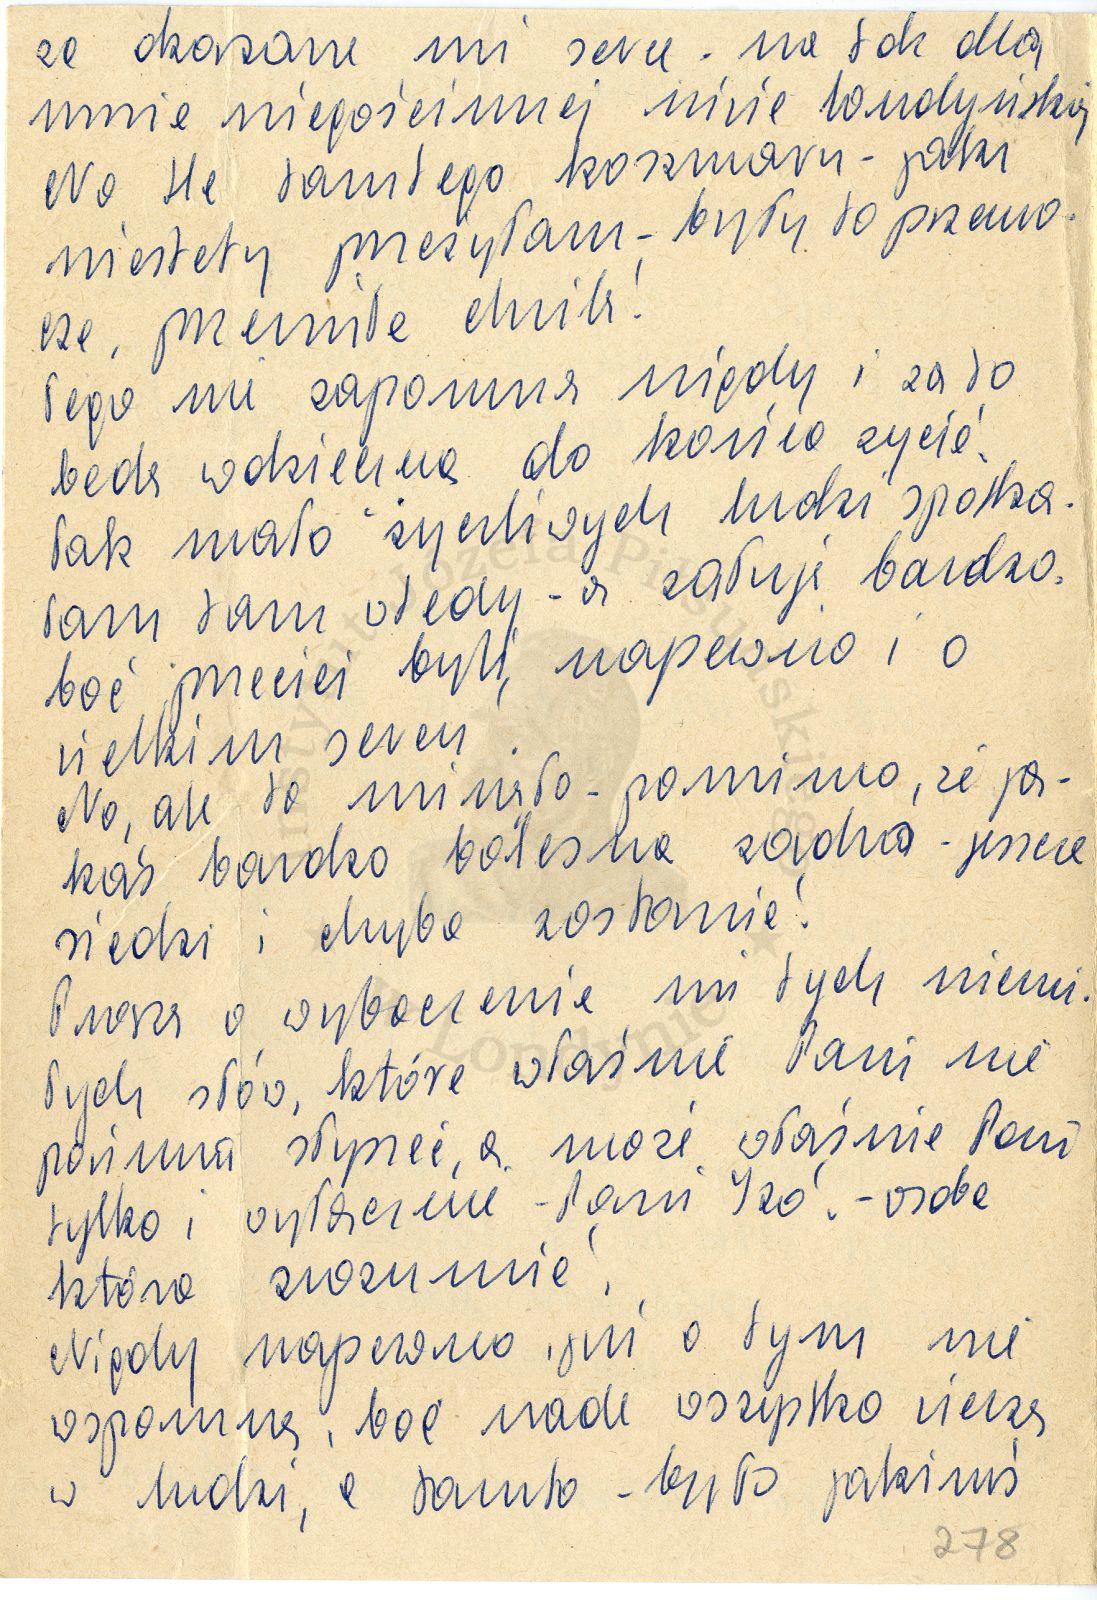 za okazane mi serce - na tak dla
mnie niegościnnej niwie londyńskiej
No tle tamtego koszmaru - jaki
niestety przeżyłam - były to przeuro-
cze, przemiłe chwile!
Tego nie zapomnę nigdy i za to
będę wdzięczna do końca życia.
Tak mało życzliwych ludzi spotka-
łam tam wtedy - a żałuję bardzo.
boć przecież byli, napewno i o
wielkim sercu.
No, ale to minęło - pomimo, że ja-
kaś bardzo bolesna zadra - jeszcze
siedzi i chyba zostanie!
Proszę o wybaczenie mi tych niemi-
łych słów, które właśnie Pani nie
powinna słyszeć, a może właśnie Pani
tylko i wyłącznie - Pani Iza. - osoba
która zrozumie!
Nigdy napewno już o tym nie
wspomnę, boć nade wszystko wierzę
w ludzi, a tamto - było jakimś
278
Instytut Józefa Piłsudskiego
w Londynie